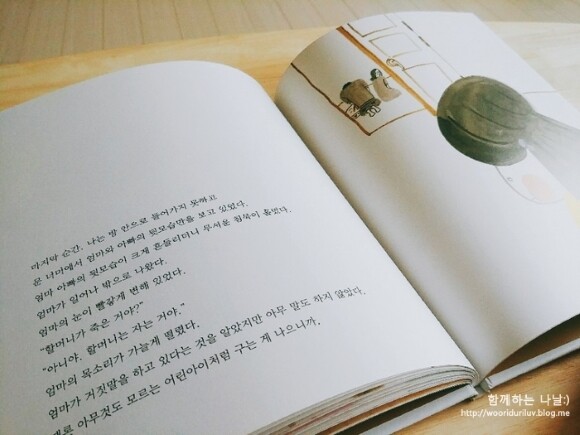 마지막 순간, 나는 방 안으로 들어가지 못하고
문 너머에서 엄마와 아빠의 뒷모습만을 보고 있었다.
엄마 아빠의 뒷모습이 크게 흔들리더니 무서운 침묵이 흘렀다.
엄마가 일어나 밖으로 나왔다.
엄마의 눈이 빨갛게 변해 있었다.
"할머니가 죽은 거야?"
"아니야. 할머니는 자는 거야."
엄마의 목소리가 가늘게 떨렸다.
엄마가 거짓말을 하고 있다는 것을 알았지만 아무 말도 하지 않았다.
때로 아무것도 모르는 어린아이처럼 구는 게 나으니까.
함께하는 나날:)
http://wooriduriluv.blog.me